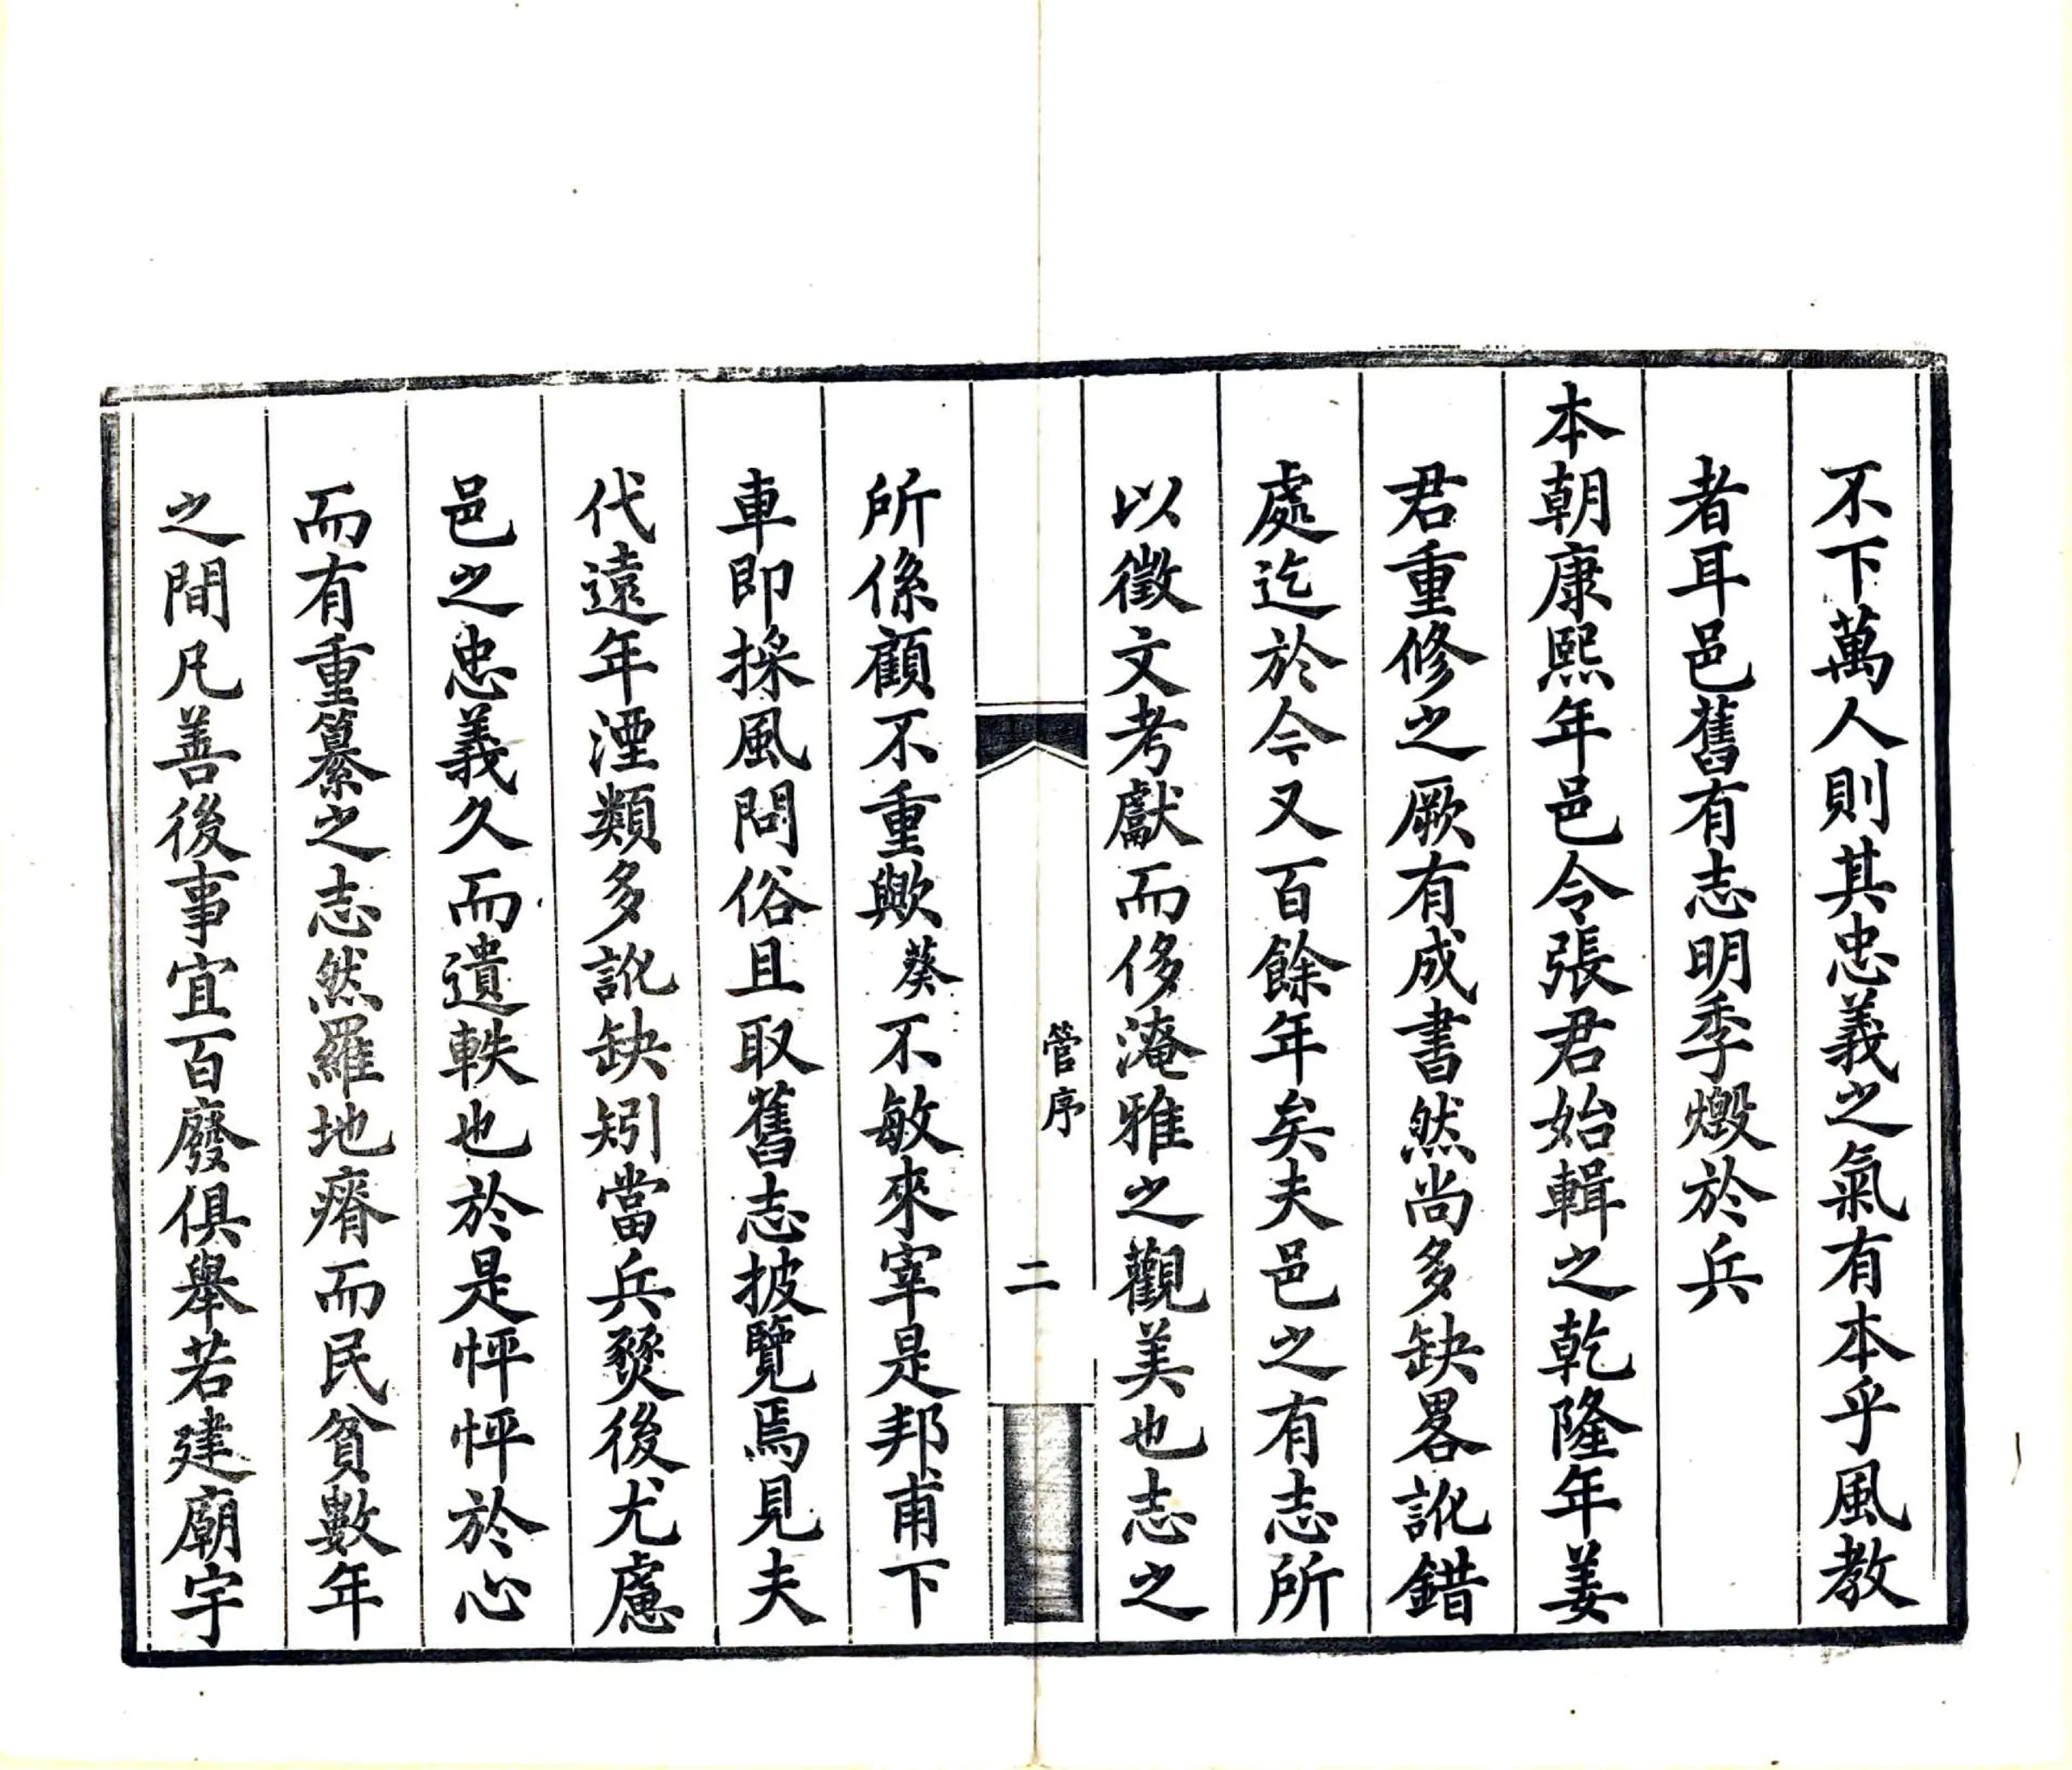 不下萬人則其忠義之氣有本乎風教
者耳邑舊有志明季燬於兵
本朝康熙年邑令張君始輯之乾隆年姜
君重修之厥有成書然尚多缺畧訛錯
處迄於今又百餘年矣夫邑之有志所
以徵文考獻而侈淹雅之觀美也志之
管序
二
所係顧不重歟葵不敏來宰是邦甫下
車即採風問俗且取舊志披覽焉見夫
代遠年湮類多訛缺矧當兵燹後尤慮
邑之忠義久而遺軼也於是怦怦於心
而有重纂之志然羅地瘠而民貧數年
之間凡善後事宜百廢俱舉若建廟宇